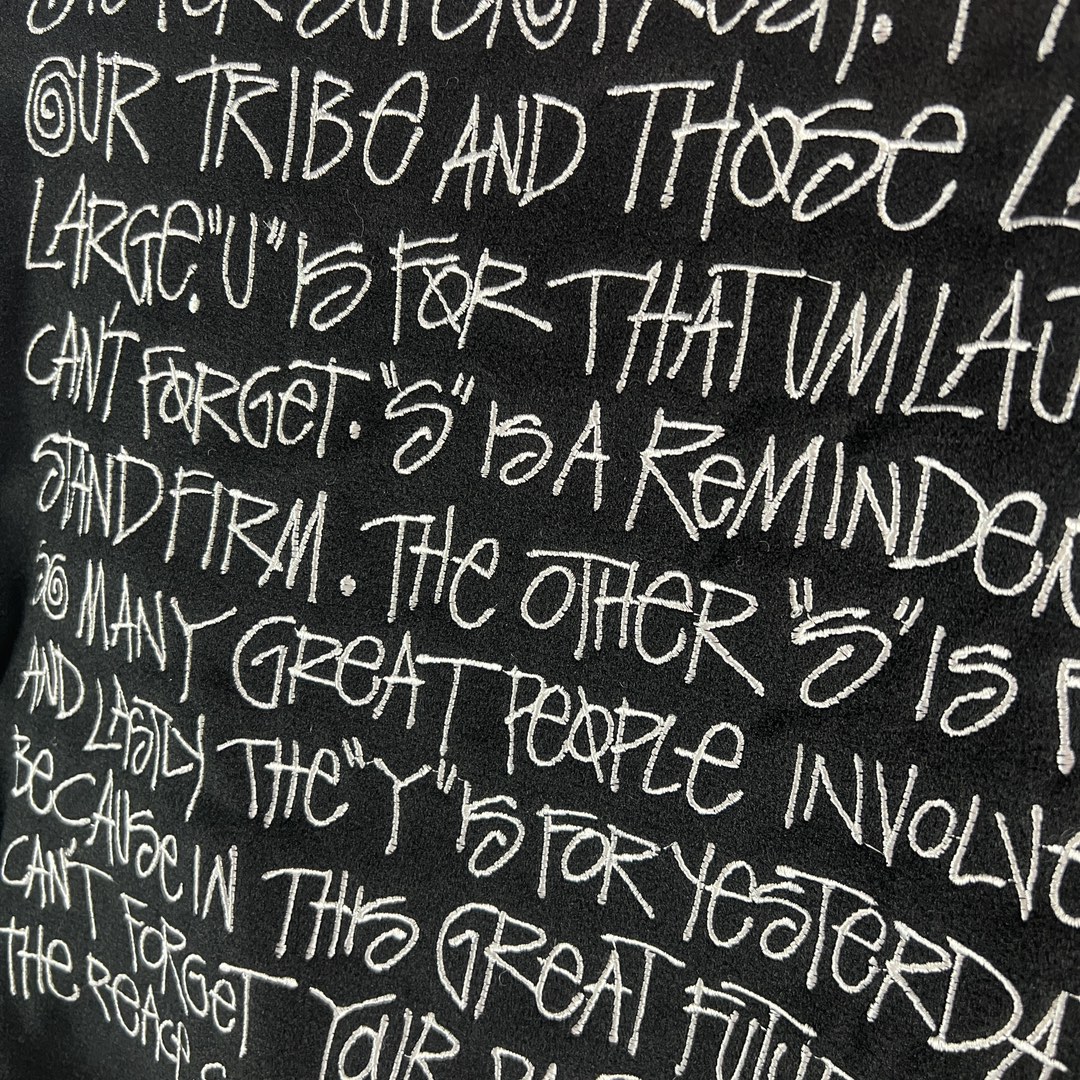 OUR TRIBE AND THOSE
LARGE. "U" IS FOR THAT UMLAU
CAN'T FORGET. "S" IS A REMINDER
STAND FIRM. THE OTHER "S" IS F
SO MANY GREAT PEOPLE INVOLVE
AND LASTLY THE "Y" IS FOR YESTERDA
BECAUSE IN THIS GREAT FUTU
CAN'T FORGET YOUR PAS
THE REA